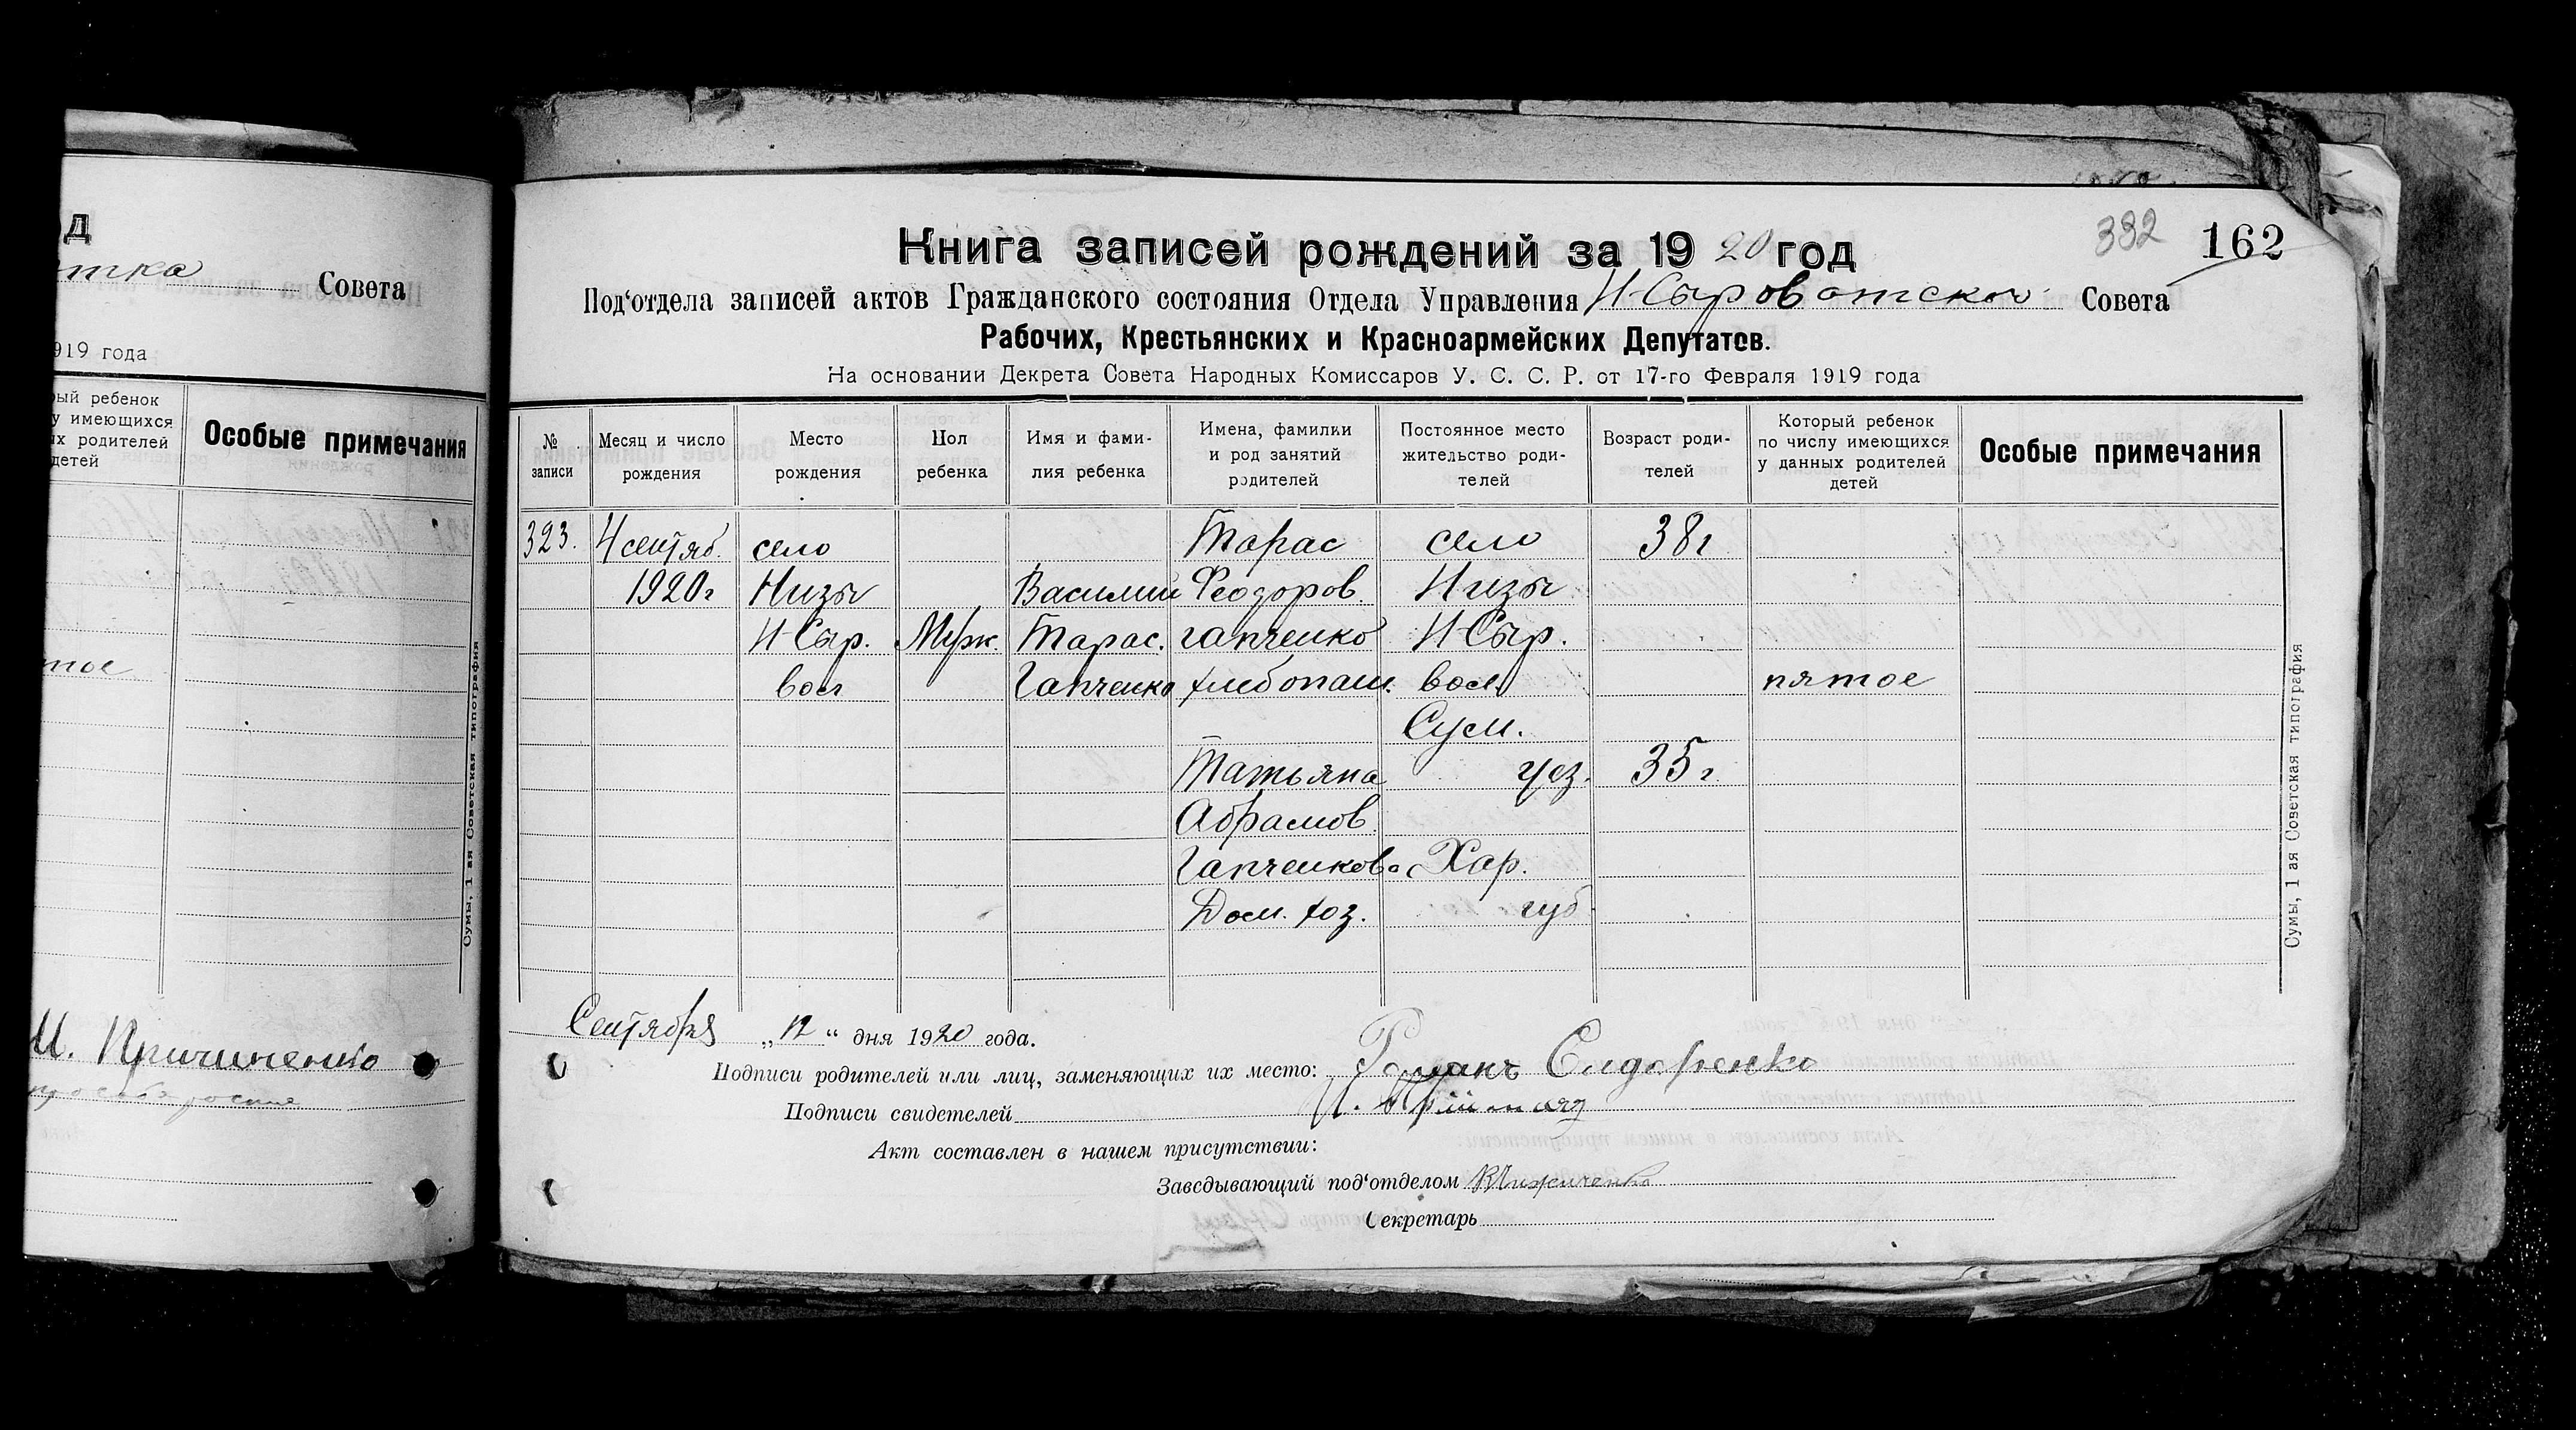 д
тка Совета
919 года
ый ребенок
у имеющихся
их родителей
детей
Особые примечания
тое
Сумы, 1 ая Советская типография
332
162
Книга записей рождений за 1920 год
Под‘отдела записей актов Гражданского состояния Отдела Управления Н-Сыроватского Совета
Рабочих, Крестьянских и Красноармейских Депутатов.
На основании Декрета Совета Народных Комиссаров У. С. С. Р. от 17-го Февраля 1919 года
№ записи
Месяц и число рождения
Место рождения
Пол ребенка
Имя и фами-
лия ребенка
Имена, фамилии
и род занятий
родителей
Постоянное место
жительство роди-
телей
Возраст роди-
телей
Который ребенок
по числу имеющихся
у данных родителей
детей
Особые примечания
323. 4 сентяб. село Тарас село 38 г
1920 г Низы Василий Феодоров. Низы
Н-Сыр. Муж. Тарас. Гапченко Н-Сыр.
вол Гапченко хлебопаш. вол. пятое
Сум.
Татьяна уез. 35 г.
Абрамов.
Гапченкова Хар.
Дом. хоз. губ.
Сентября „12“ дня 1920 года.
Подписи родителей или лиц, заменяющих их место: Романъ Сидоренко
Подписи свидетелей
Акт составлен в нашем присутствии:
Заведывающий под‘отделом
Секретарь
Сумы, 1 ая Советская типография